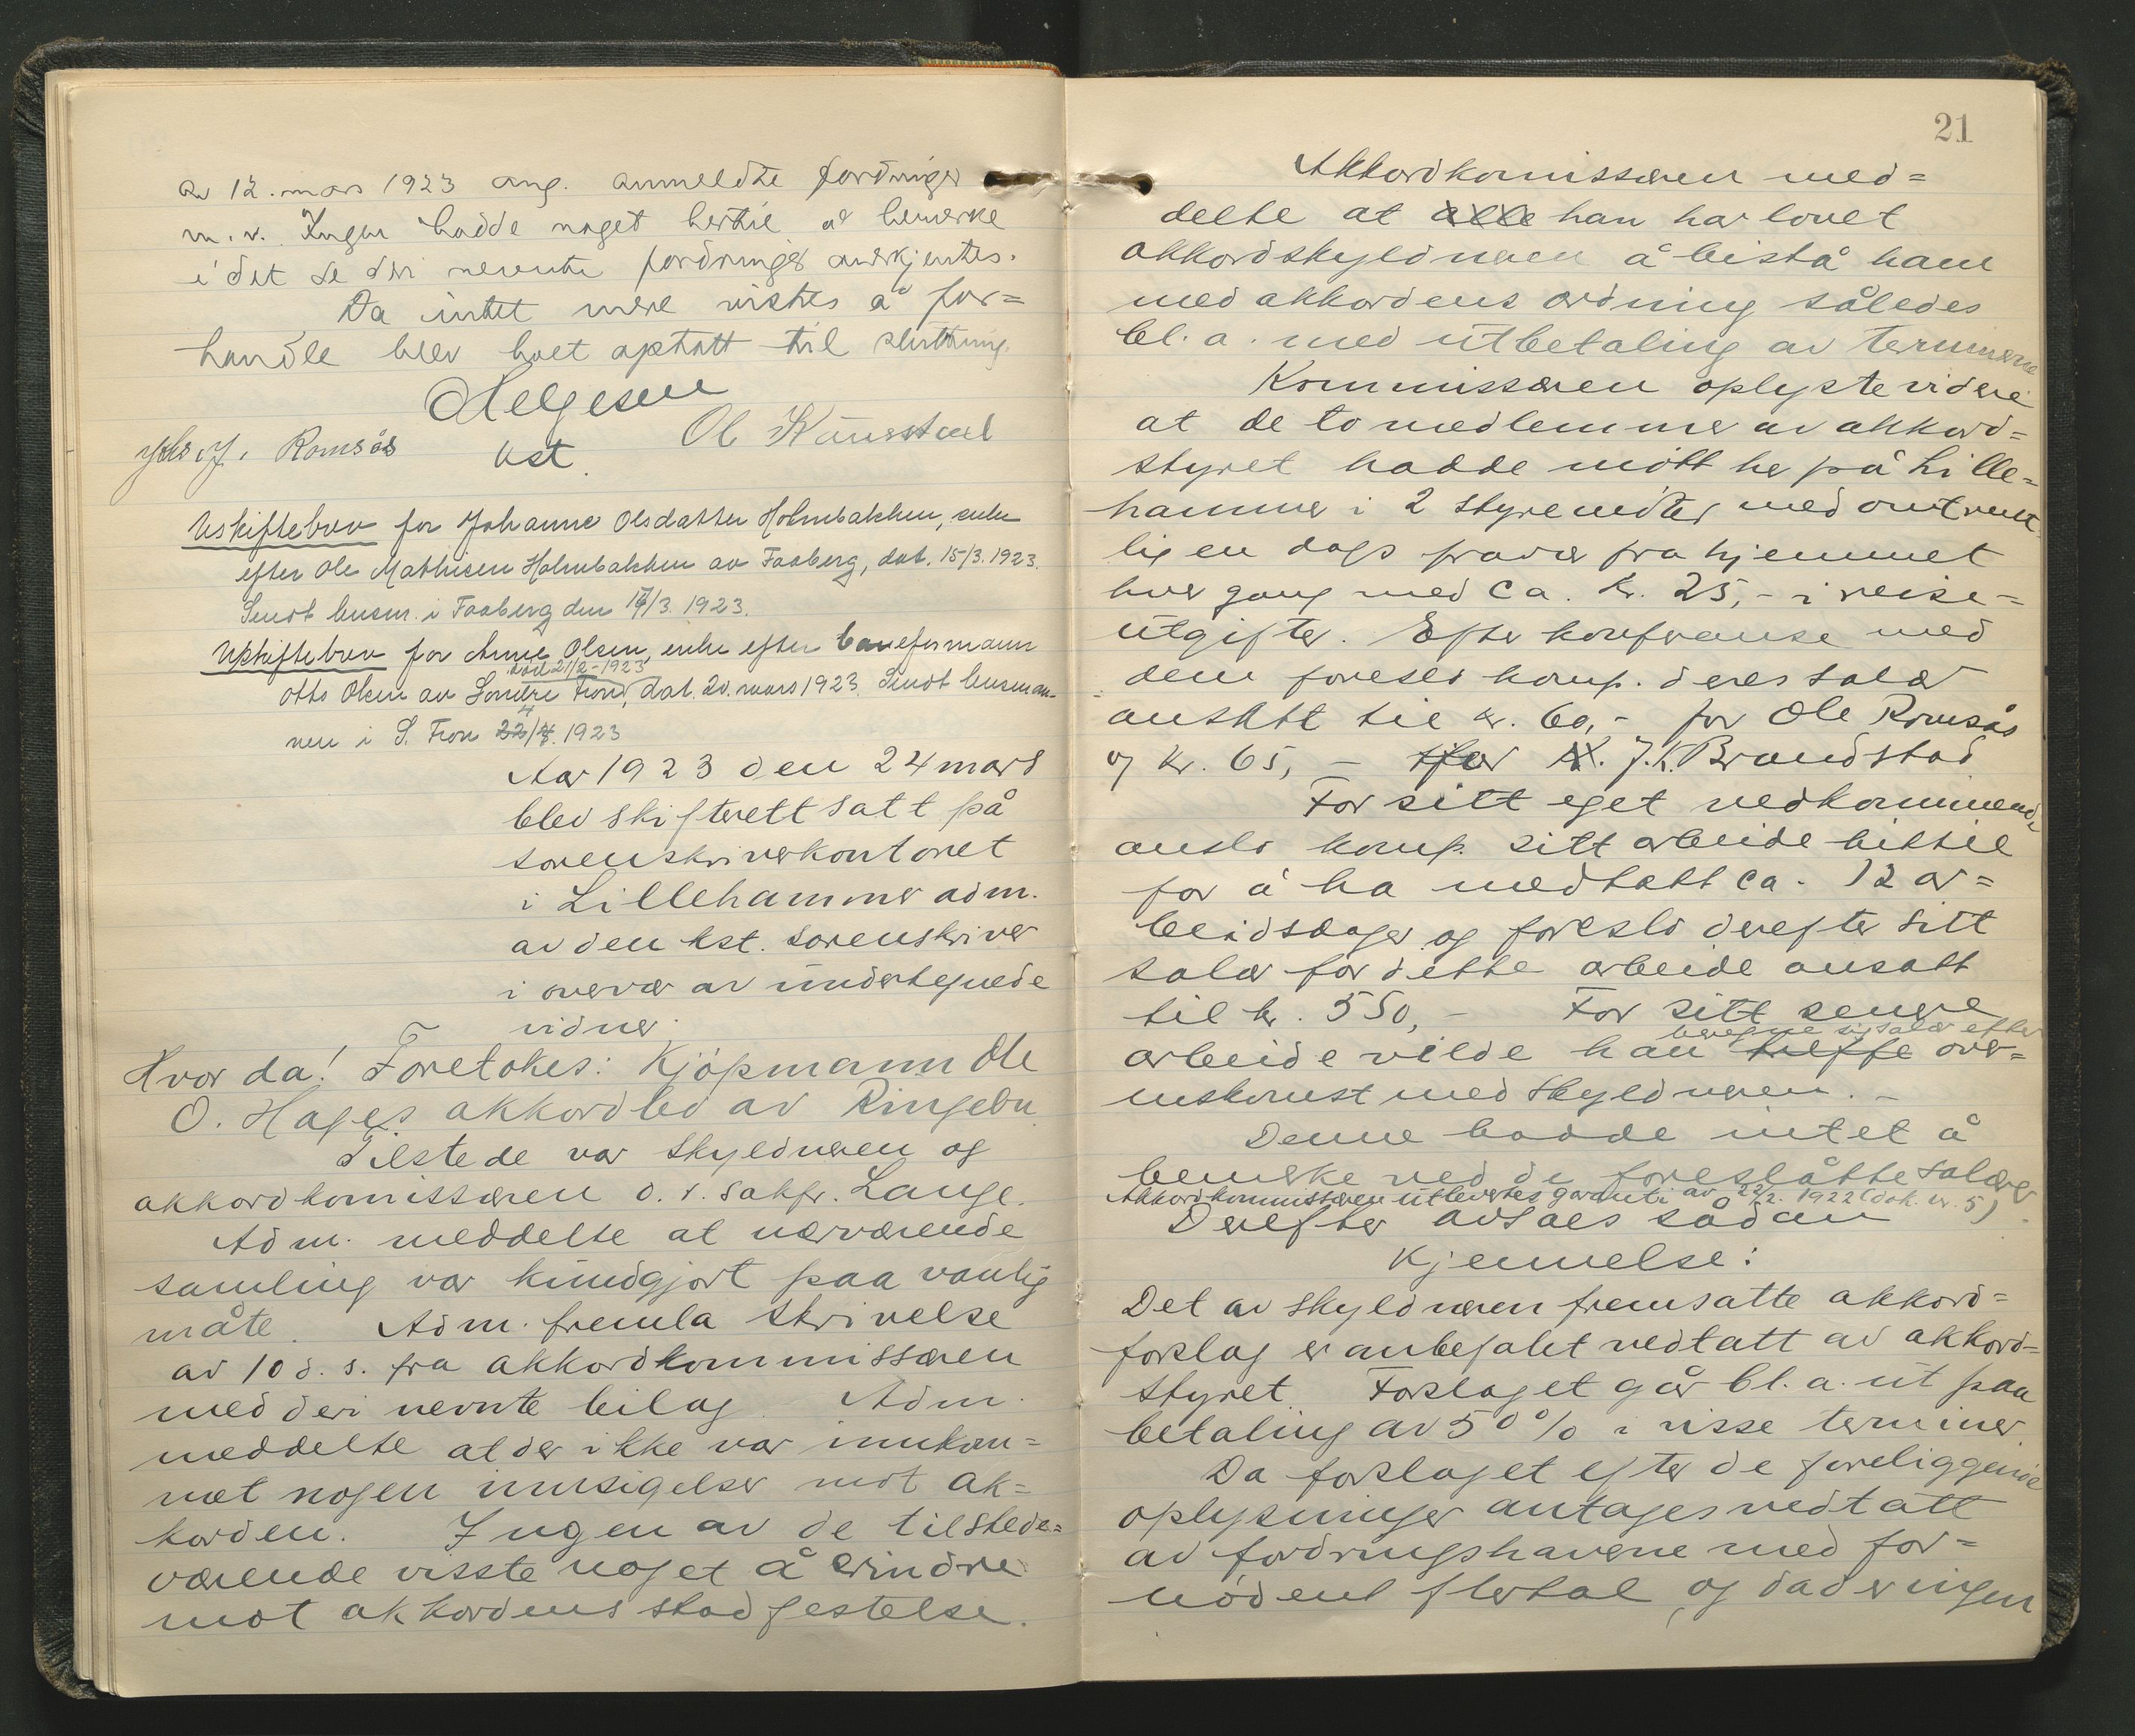 av 12. mars 1923 ang. anmeldte fordringer
m. v. Ingen hadde noget hertil å bemerke
i det de deri nevnte fordringer anerkjentes.
Da intet mere vistes å for=
handle blev boet optatt til slutning.
Helgesen
Ole Kausstad
Johs. J. Romsås
kst.
Uskiftebrev for Johanne Olsdatter Holmbakken, enke
efter Ole Mathisen Holmbakken av Faaberg, dat. 15/3. 1923.
Sendt lensm. i Faaberg den 17/3. 1923.
Uskiftebrev for Anne Olsen, enke efter baneformann
død 21/2-1923
Otto Olsen av Søndre Fron, dat. 20. mars 1923. Sendt lensman-
nen i S. Fron 22/4. 1923
Aar 1923 den 24 mars
blev skifterett satt på
sorenskriverkontoret
i Lillehammer adm.
av den kst. sorenskriver
i overvær av undertegnede
vidner.
Hvor da! Foretokes: Kjöpmann Ole
O. Hages akkordbo av Ringebu.
Tilstede var skyldneren og
akkordkomissæren o. r. sakfr. Lange.
Adm. meddelte at nærværende
samling var kundgjort paa vanlig
måte. Adm. fremla skrivelse
av 10 d. s. fra akkordkommissæren
med deri nevnte bilag. Adm.
meddelte at der ikke var innkom=
met nogen innsigelser mot ak=
korden. Ingen av de tilstede=
værende visste noget å erindre
mot akkordens stadfestelse.
21
Akkordkomissæren med=
delte at alle han har lovet
akkordskyldneren å bistå ham
med akkordens ordning således
bl. a. med utbetaling av terminene
Kommissæren oplyste videre
at de to medlemmer av akkord=
styret hadde mött her på Lille=
hammer i 2 styremöter med omtrent
lig en dags fravær fra hjemmet
hver gang med ca. kr. 25,- i reise=
utgifter. Efter konferanse med
dem foreslo komp. deres salær
ansatt til kr. 60,- for Ole Romsås
og kr. 65,- for J. K. Brandstad
For sitt eget vedkommende
anslo komp. sitt arbeide hittil
for å ha medtatt ca. 12 ar=
beidsdager og foreslo derefter sitt
salær for dette arbeide ansatt
til kr. 550,- For sitt senere
beregne sig salær efter
arbeide vilde han treffe over=
enskomst med skyldneren. -
Denne hadde intet å
bemerke ved de foreslåtte salær
Akkordkommissæren utlevertes garanti av 22/2. 1922 (dok. nr. 5)
Derefter avsaes sådan
Kjennelse:
Det av skyldneren fremsatte akkord=
forslag er anbefalet vedtatt av akkord=
styret. Forslaget går bl. a. ut paa
betaling av 50 % i visse terminer.
Da forslaget efter de foreliggende
oplysninger antages vedtatt
av fordringshaverne med for=
nödent flertal, og da der ingen